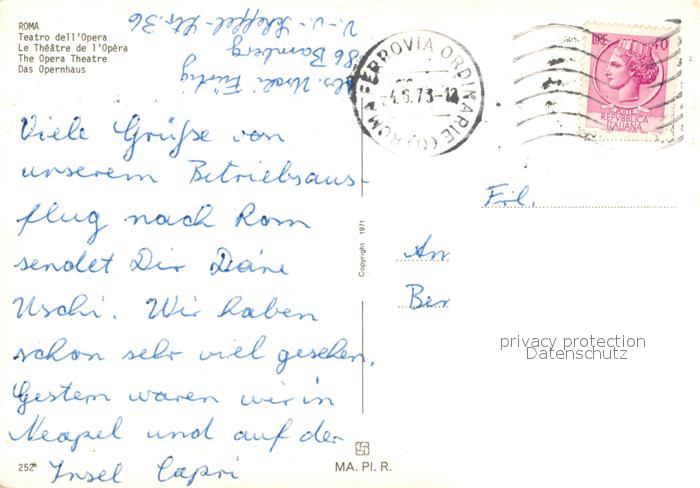 ROMA
Teatro dell'Opera
Le Théâtre de l'Opéra
The Opera Theatre
Das Opernhaus
Abs. Uschi
86 Bamberg
V.-v.-Scheffel-Str. 36
ROMA FERROVIA ORDINARIE
-4.6.73-12
LIRE 40
POSTE
REPVBBLICA
ITALIANA
Viele Grüße von
unserem Betriebsaus-
flug nach Rom
sendet Dir Deine
Uschi. Wir haben
schon sehr viel gesehen.
Gestern waren wir in
Neapel und auf der
Insel Capri
Frl.
An
Ber
Copyright 1971
privacy protection
Datenschutz
252
MA. PI. R.